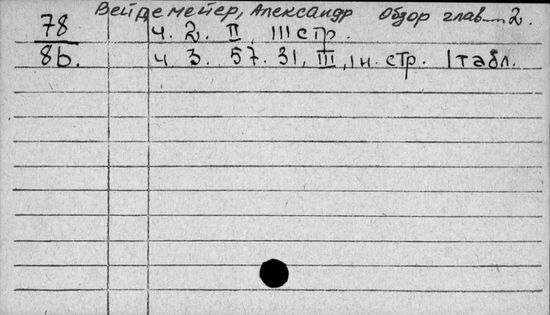 Вейдемейер, Александр Обзор глав....2.
78 ч. 2. II, 111 стр.
8b. ч 3. 57. 31, III, 1н. стр. 1 табл.